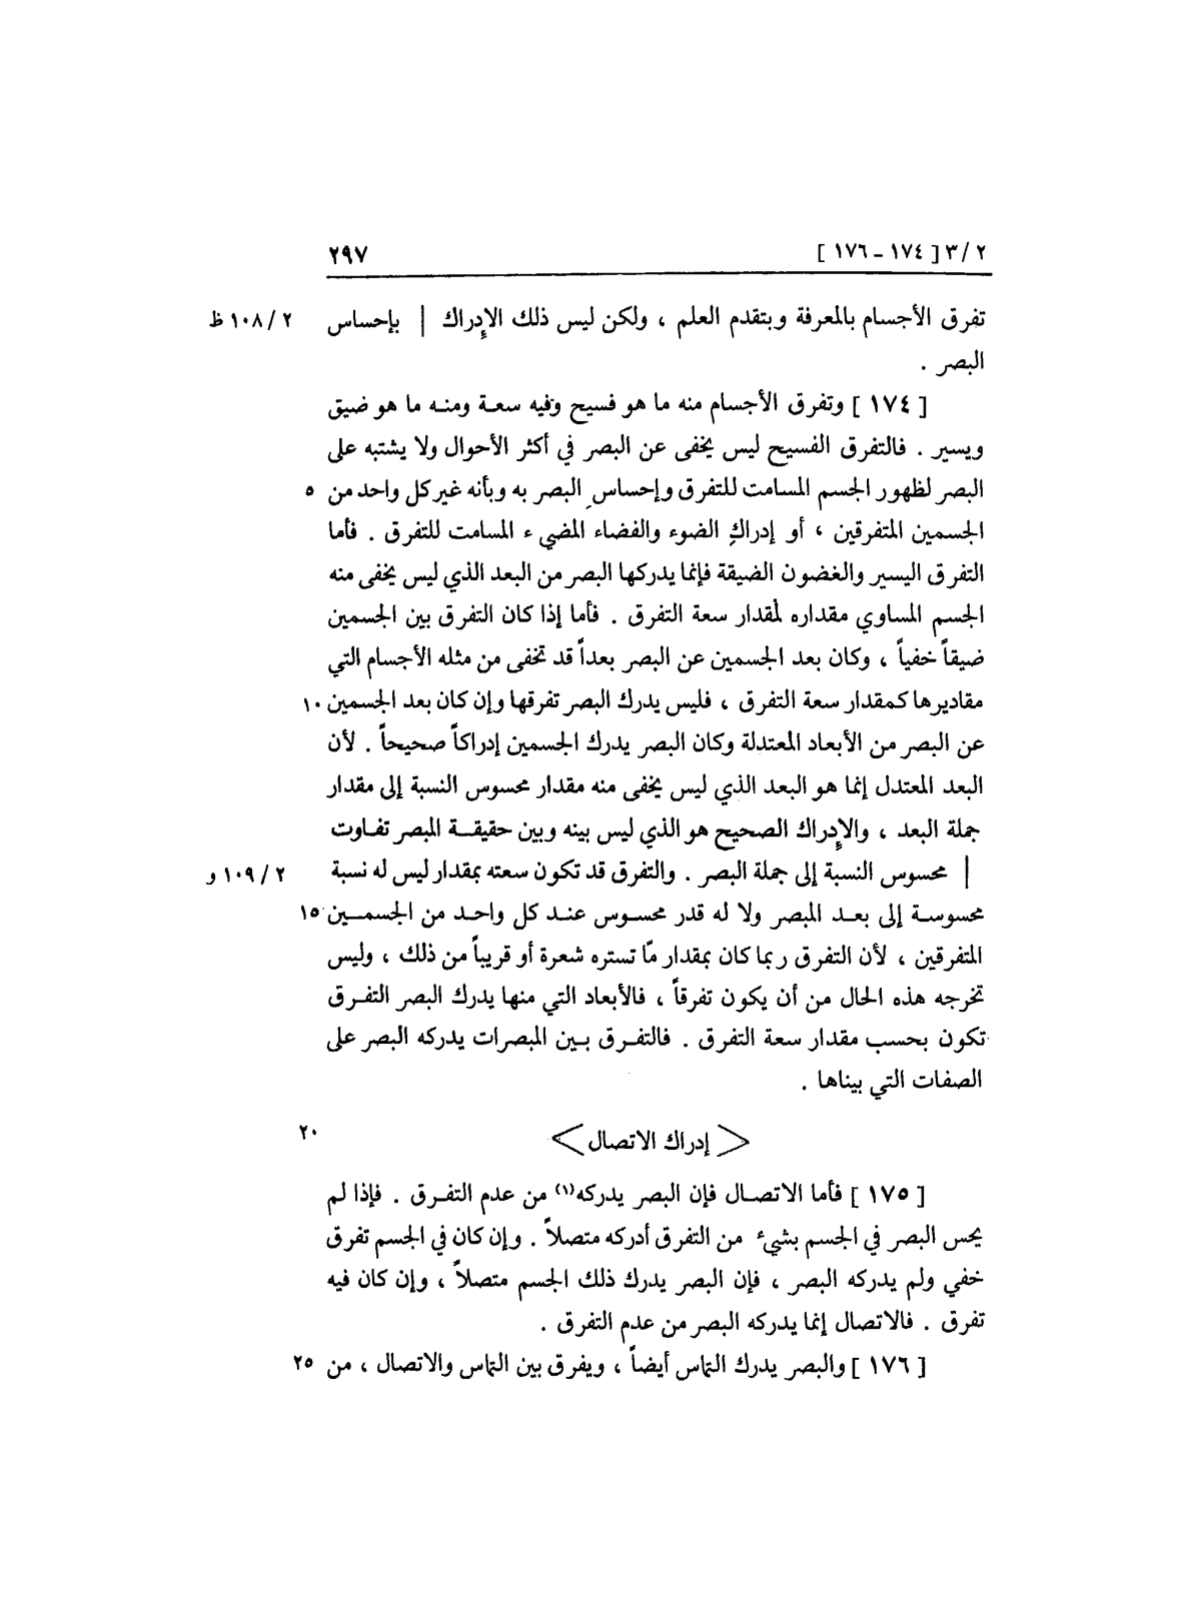 ٢ / ٣ [ ١٧٤ - ١٧٦ ] ٢٩٧
تفرق الأجسام بالمعرفة وبتقدم العلم ، ولكن ليس ذلك الإدراك | بإحساس ٢ / ١٠٨ ظ
البصر .
[ ١٧٤ ] وتفرق الأجسام منه ما هو فسيح وفيه سعة ومنه ما هو ضيق
ويسير . فالتفرق الفسيح ليس يخفى عن البصر في أكثر الأحوال ولا يشتبه على
البصر لظهور الجسم المسامت للتفرق وإحساسِ البصر به وبأنه غير كل واحد من ٥
الجسمين المتفرقين ، أو إدراكِ الضوء والفضاء المضيء المسامت للتفرق . فأما
التفرق اليسير والغضون الضيقة فإنما يدركها البصر من البعد الذي ليس يخفى منه
الجسم المساوي مقداره لمقدار سعة التفرق . فأما إذا كان التفرق بين الجسمين
ضيقاً خفياً ، وكان بعد الجسمين عن البصر بعداً قد تخفى من مثله الأجسام التي
مقاديرها كمقدار سعة التفرق ، فليس يدرك البصر تفرقها وإن كان بعد الجسمين ١٠
عن البصر من الأبعاد المعتدلة وكان البصر يدرك الجسمين إدراكاً صحيحاً . لأن
البعد المعتدل إنما هو البعد الذي ليس يخفى منه مقدار محسوس النسبة إلى مقدار
جملة البعد ، والإدراك الصحيح هو الذي ليس بينه وبين حقيقة المبصر تفاوت
| محسوس النسبة إلى جملة البصر . والتفرق قد تكون سعته بمقدار ليس له نسبة ٢ / ١٠٩ و
محسوسة إلى بعد المبصر ولا له قدر محسوس عند كل واحد من الجسمين ١٥
المتفرقين ، لأن التفرق ربما كان بمقدار مّا تستره شعرة أو قريباً من ذلك ، وليس
تخرجه هذه الحال من أن يكون تفرقاً ، فالأبعاد التي منها يدرك البصر التفرق
تكون بحسب مقدار سعة التفرق . فالتفرق بين المبصرات يدركه البصر على
الصفات التي بيناها .
< إدراك الاتصال > ٢٠
[ ١٧٥ ] فأما الاتصال فإن البصر يدركه(١) من عدم التفرق . فإذا لم
يحس البصر في الجسم بشيء من التفرق أدركه متصلاً . وإن كان في الجسم تفرق
خفي ولم يدركه البصر ، فإن البصر يدرك ذلك الجسم متصلاً ، وإن كان فيه
تفرق . فالاتصال إنما يدركه البصر من عدم التفرق .
[ ١٧٦ ] والبصر يدرك التماس أيضاً ، ويفرق بين التماس والاتصال ، من ٢٥